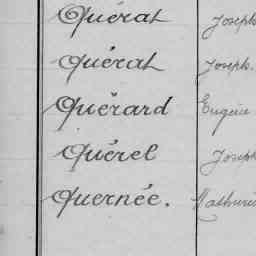 Quérat Joseph
Quérat Joseph.
Quérard Eugène
Quérel Joseph
Quernée. Mathurin